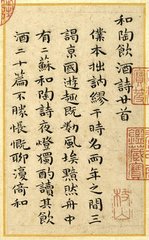 和陶飲酒詩廿首
僕本拙訥繆干時名兩年之間三
謁京國遊趣既勌風埃黯然舟中
有二蘇和陶詩夜燈獨酌讀其飲
酒二十篇不勝悵慨聊漫倚和
枝山